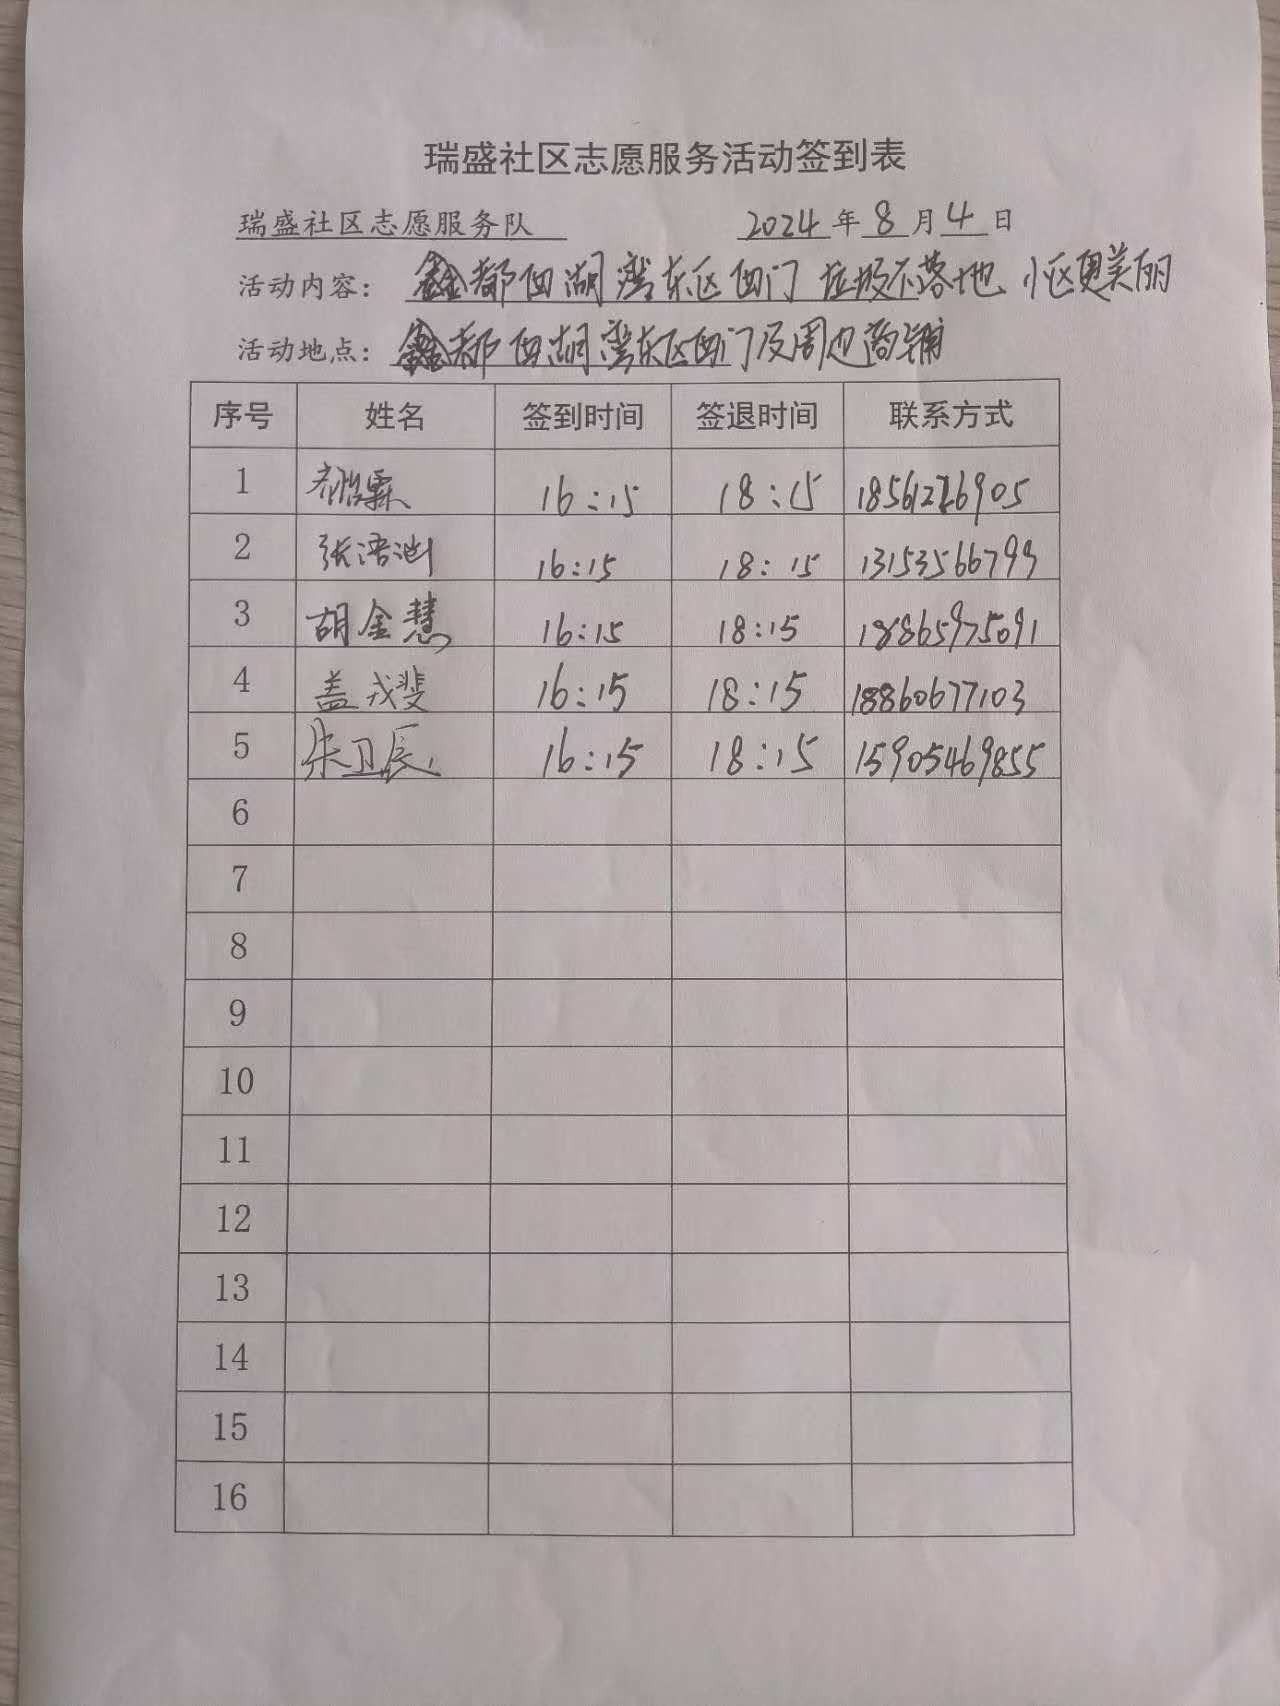 瑞盛社区志愿服务活动签到表
瑞盛社区志愿服务队 2024年8月4日
活动内容：鑫都西湖湾东区西门 垃圾不落地 小区更美丽
活动地点：鑫都西湖湾东区西门及周边商铺
序号 姓名 签到时间 签退时间 联系方式
1 霖 16:15 18:15
2 张语 16:15 18:15 13153566799
3 胡金慧 16:15 18:15 18865975091
4 盖戎斐 16:15 18:15 18860677103
5 朱卫辰 16:15 18:15 15905469855
6
7
8
9
10
11
12
13
14
15
16